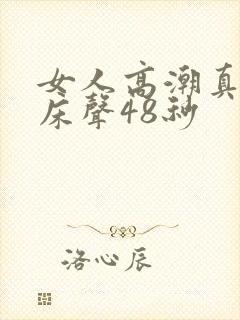 女人高潮真
床聲48秒
洛心辰